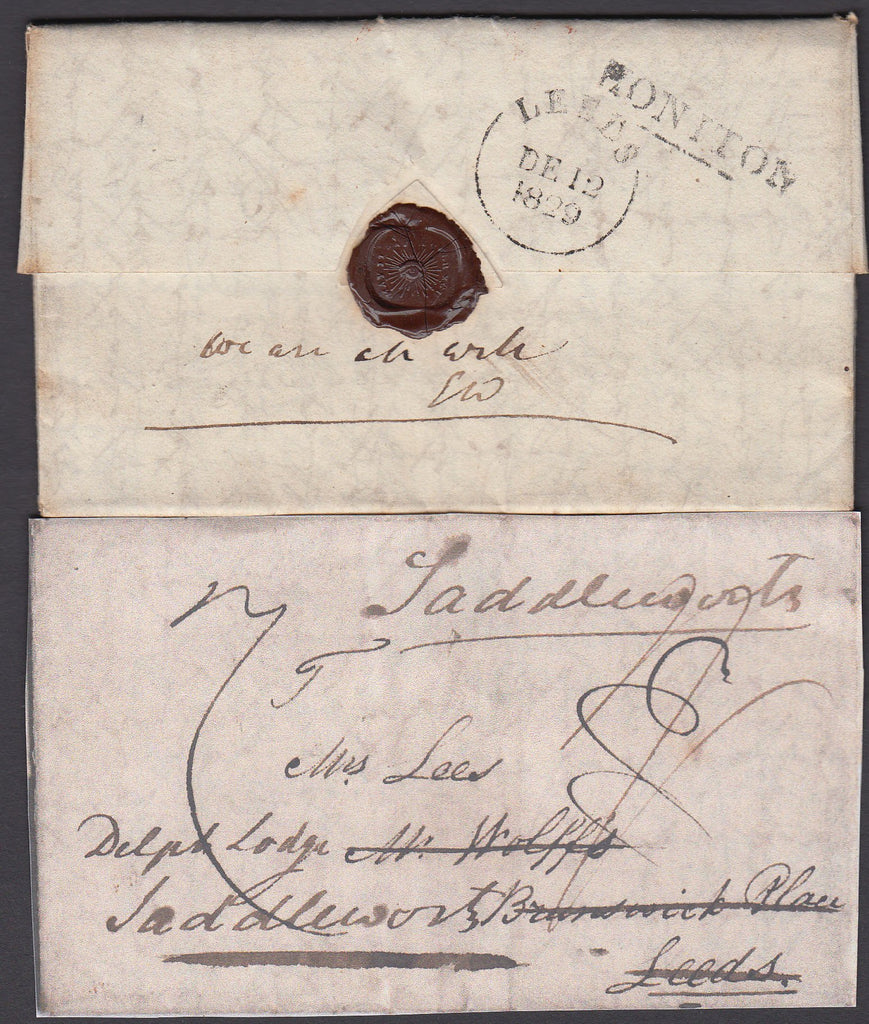 HONITON
LEEDS
DE 12
1829
we are all well
EW
Saddleworth
T
Mrs Lees
Delph Lodge Mr. Wolff's
Saddleworth Brunswick Place
Leeds.